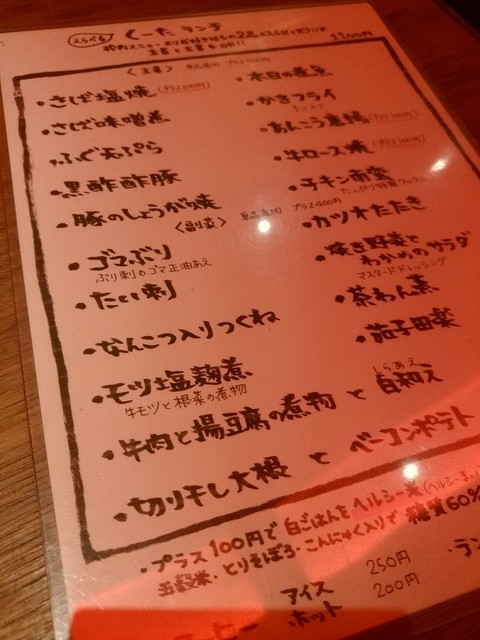 えらべる くーた ランチ
枠内メニューよりお好きなもの2品
主菜+主菜もOK!! 1100円
〈主菜〉 単品追加 プラス
・さしば塩焼 (プラス100円)
・本日の煮魚
・さしば味噌煮
・かきフライ
・ふぐ天ぷら
・あんこう唐揚 (プラス100円)
・黒酢酢豚
・牛ロース焼 (プラス100円)
・豚のしょうが焼
・チキン南蛮
たっぷり特製タルタル
〈副菜〉 単品追加 プラス400円
・ゴマぶり
ぶり刺のゴマ正油あえ
・カツオたたき
・たい刺
・焼き野菜と
わかめのサラダ
マスタードドレッシング
・なんこつ入りつくね
・茶わん蒸
・モツ塩麹煮
牛モツと根菜の煮物
・茄子田楽
・牛肉と揚豆腐の煮物 と 白和え
しらあえ
・切り干し大根 と ベーコンポテト
・プラス100円で 白ごはんを ヘルシー米 (ヘルシーまい
五穀米・とりそぼろ・こんにゃく入りで 糖質60%
アイス 250円
ホット 200円
・ラン